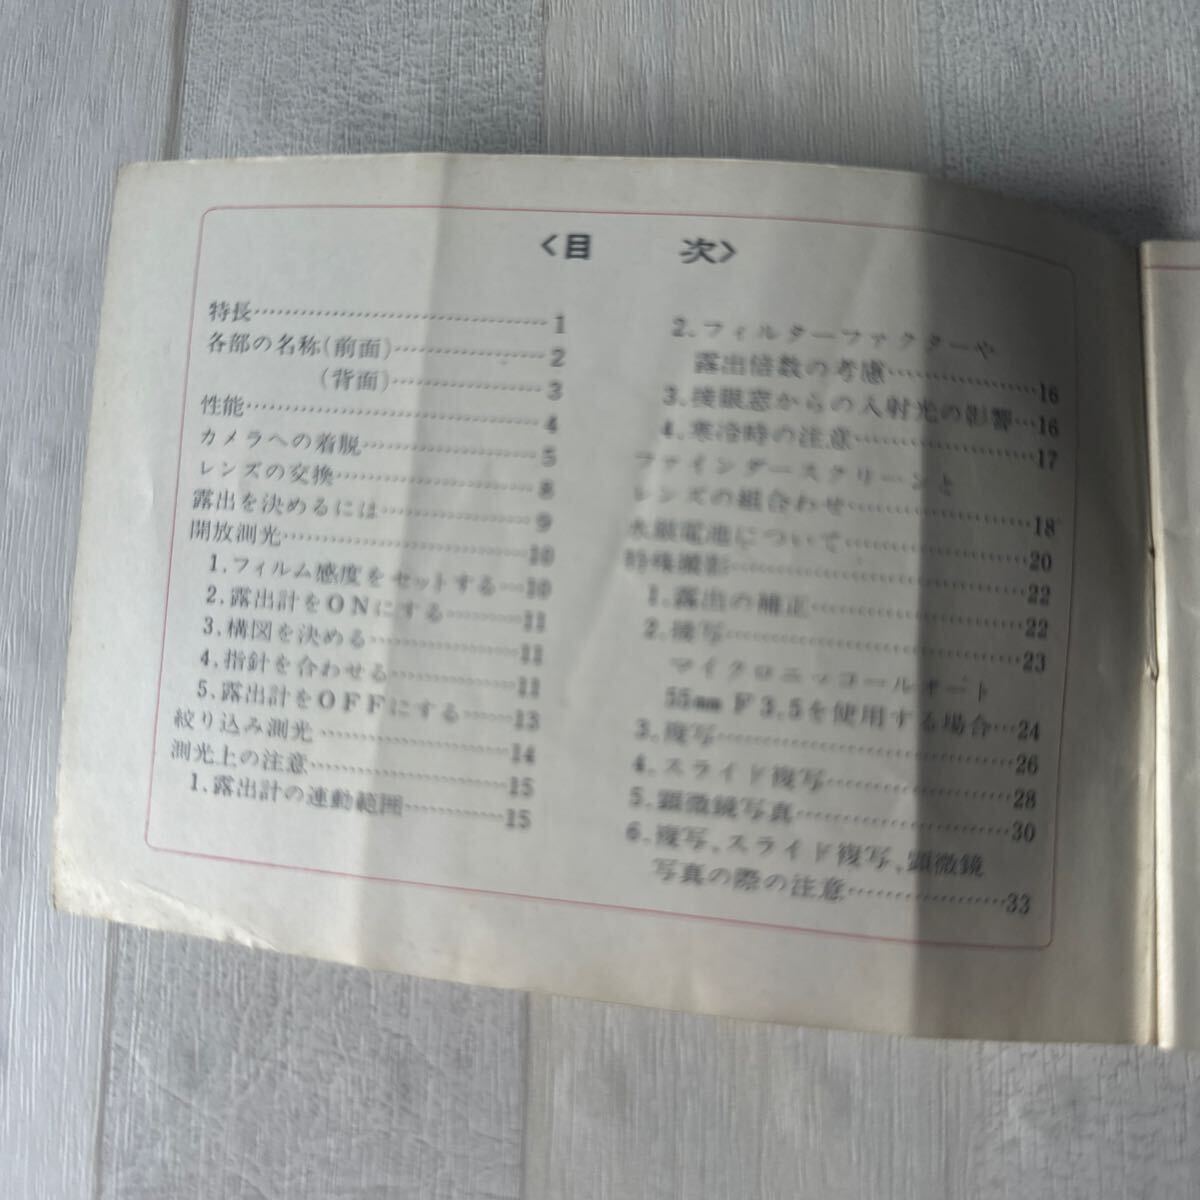 〈目　次〉
特長……………………………1
各部の名称(前面)………………2
(背面)………………3
性能……………………………4
カメラへの着脱…………………5
レンズの交換……………………8
露出を決めるには………………9
開放測光…………………………10
1.フィルム感度をセットする…10
2.露出計をONにする………11
3.構図を決める………………11
4.指針を合わせる……………11
5.露出計をOFFにする……13
絞り込み測光……………………14
測光上の注意……………………15
1.露出計の連動範囲…………15
2.フィルターファクターや
露出倍数の考慮………………16
3.接眼窓からの入射光の影響…16
4.寒冷時の注意………………17
ファインダースクリーンと
レンズの組合わせ………………18
水銀電池について………………20
特殊撮影…………………………22
1.露出の補正…………………22
2.接写…………………………23
マイクロニッコールオート
55mm F3.5を使用する場合…24
3.複写…………………………26
4.スライド複写………………28
5.顕微鏡写真…………………30
6.複写、スライド複写、顕微鏡
写真の際の注意………………33